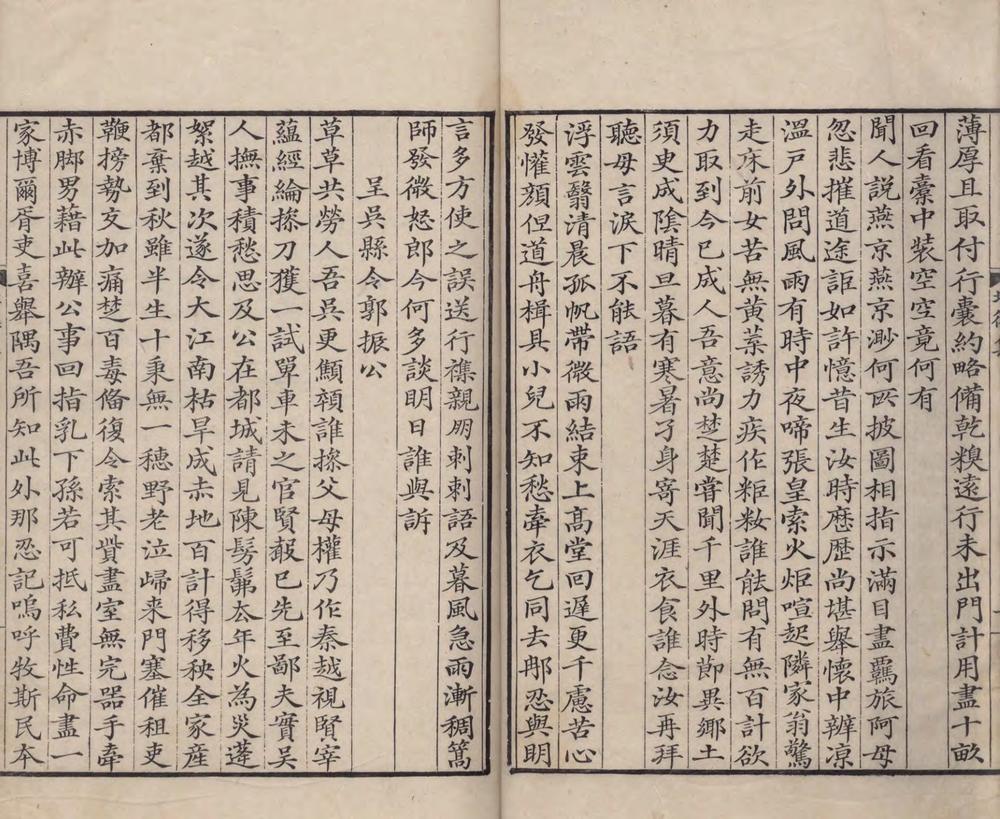 薄厚且取付行囊約略備乾糗遠行未出門計用盡十畝
回看橐中裝空空竟何有
聞人說燕京燕京渺何所披圖相指示滿目盡羈旅阿母
忽悲摧道途詎如許憶昔生汝時歷歷尚堪舉懷中辨凉
溫戶外問風雨有時中夜啼張皇索火炬喧起隣家翁驚
走床前女苦無黃葉誘力疾作粔籹誰能問有無百計欲
力取到今已成人吾意尚楚楚嘗聞千里外時節異鄉土
須臾成陰晴旦暮有寒暑孑身寄天涯衣食誰念汝再拜
聽母言淚下不能語
浮雲翳清晨孤帆帶微雨結束上高堂回遲更千慮苦心
發懽顏但道舟楫具小兒不知愁牽衣乞同去那忍與明
言多方使之誤送行襍親朋刺刺語及暮風急雨漸稠篙
師發微怒郎今何多談明日誰與訴
呈吳縣令郭振公
草草共勞人吾吳更顦顇誰操父母權乃作秦越視賢宰
蘊經綸操刀獲一試單車未之官賢聲已先至鄙夫實吳
人撫事積愁思及公在都城請見陳髣髴去年火為災蓬
絮越其次遂令大江南枯旱成赤地百計得移秧全家産
都棄到秋雖半生十秉無一穗野老泣歸来門塞催租吏
鞭搒勢交加痛楚百毒俻復令索其貲盡室無完器手牽
赤脚男藉此辦公事回指乳下孫若可抵私費性命盡一
家博爾胥吏喜舉隅吾所知此外那忍記嗚呼牧斯民本